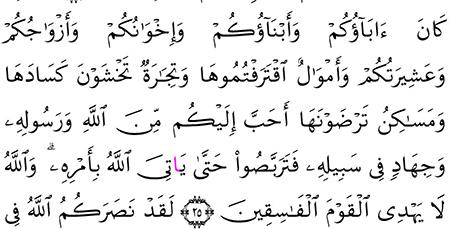 كَانَ ءَابَآؤُكُمْ وَأَبْنَآؤُكُمْ وَإِخْوَٰنُكُمْ وَأَزْوَٰجُكُمْ
وَعَشِيرَتُكُمْ وَأَمْوَٰلٌ ٱقْتَرَفْتُمُوهَا وَتِجَٰرَةٌ تَخْشَوْنَ كَسَادَهَا
وَمَسَٰكِنُ تَرْضَوْنَهَا أَحَبَّ إِلَيْكُم مِّنَ ٱللَّهِ وَرَسُولِهِۦ
وَجِهَادٍ فِى سَبِيلِهِۦ فَتَرَبَّصُوا۟ حَتَّىٰ يَاتِىَ ٱللَّهُ بِأَمْرِهِۦۗ وَٱللَّهُ
لَا يَهْدِى ٱلْقَوْمَ ٱلْفَٰسِقِينَ ٢٥ لَقَدْ نَصَرَكُمُ ٱللَّهُ فِى